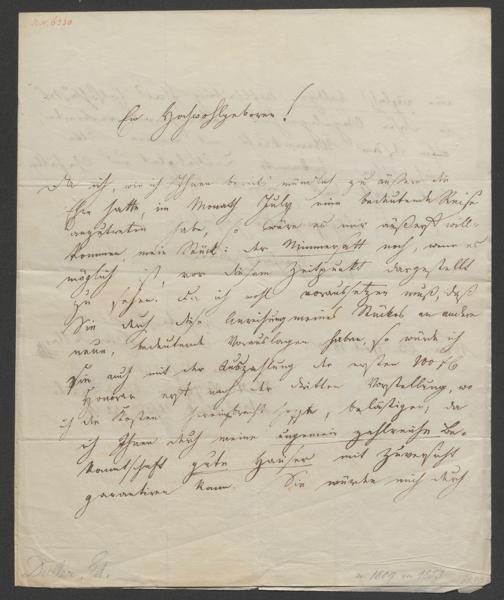 A.N. 6330
Ew. Hochwohlgeboren!
Da ich, wie ich Ihnen bereits mündlich zu äußern die
Ehre hatte, im Monath July eine bedeutende Reise
anzutreten habe, so wäre es mir äußerst will-
kommen, mein Stück: der Nimmersatt noch, wenn es
möglich ist, vor diesem Zeitpunkt dargestellt
zu sehen. Da ich wohl voraussetzen muß, daß
Sie durch diese Anreihung meines Stückes an andere
neue, bedeutende Vorauslagen haben, so würde ich
Sie auch mit der Auszahlung der ersten 100 f
Honorar erst nach der dritten Vorstellung, wo
ich die Kosten hereingebracht, belästigen, da
ich Ihnen durch meine ungemein zahlreiche Be-
kanntschaft gute Häuser mit Zuversicht
garantiren kann. Sie würden mich durch